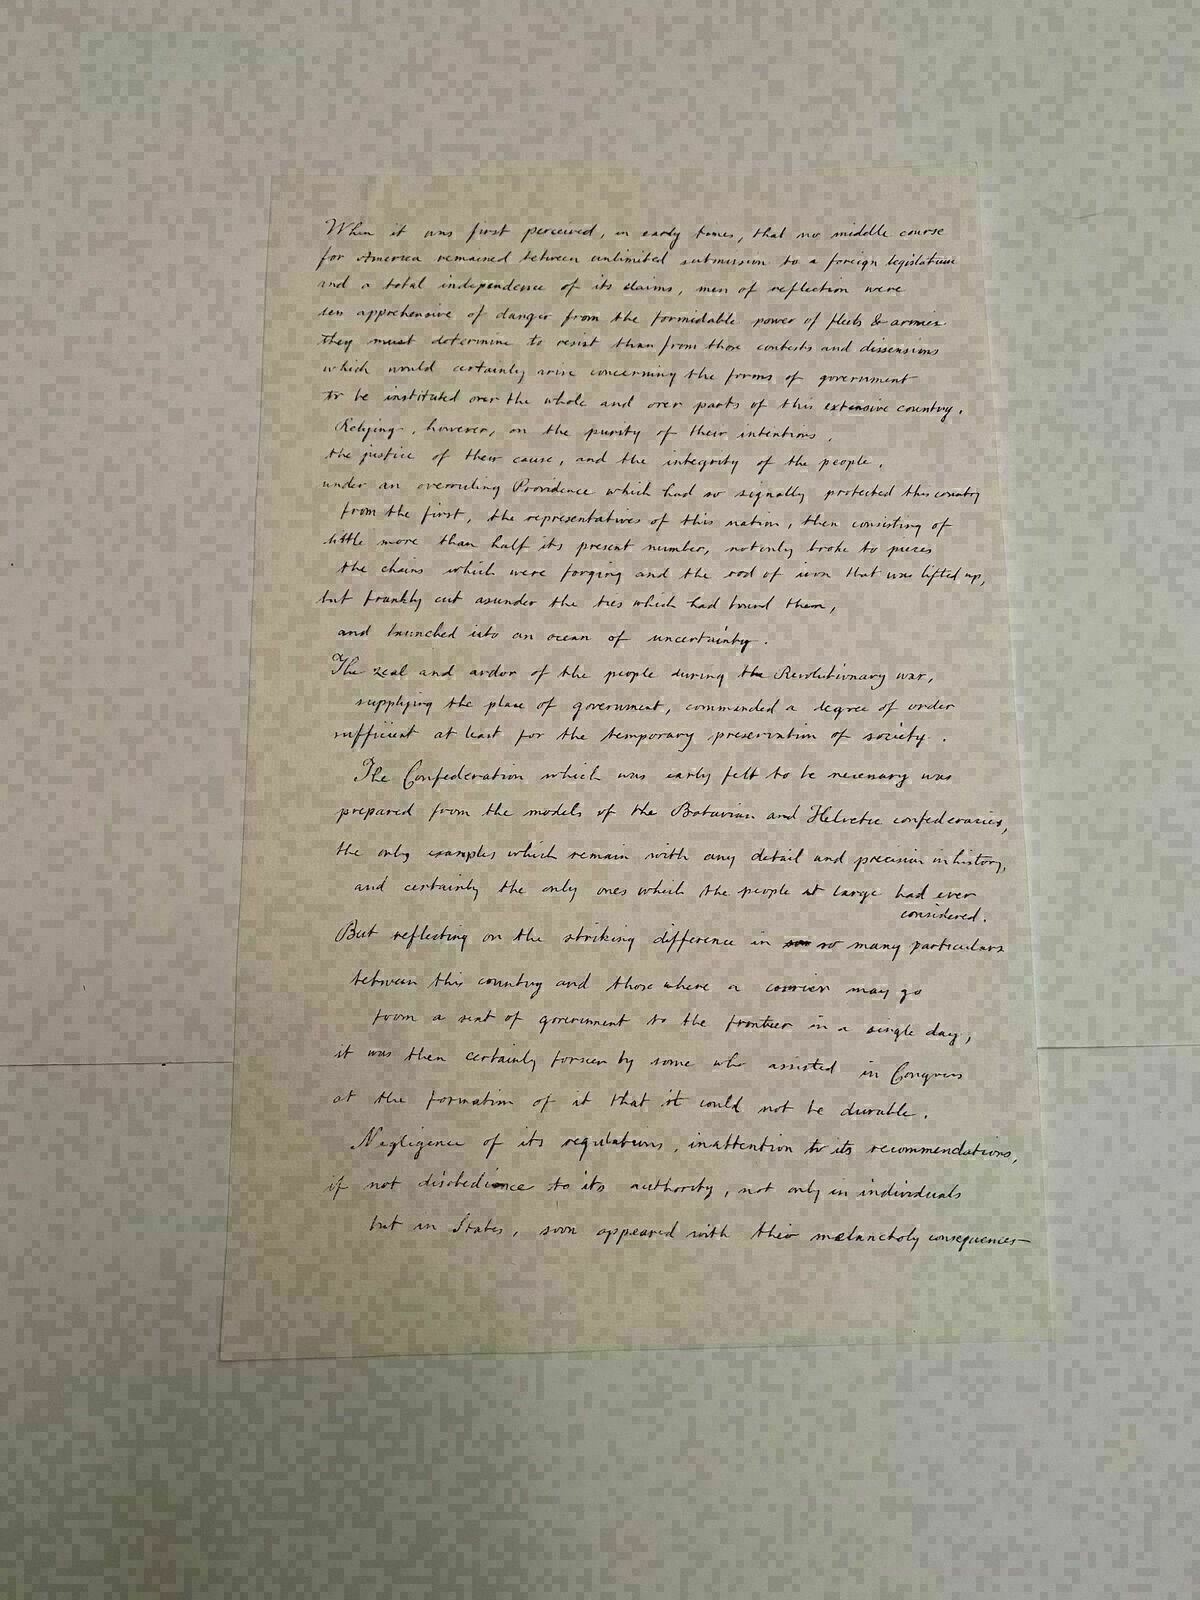 When it was first perceived, in early times, that no middle course
for America remained between unlimited submission to a foreign legislature
and a total independence of its claims, men of reflection were
less apprehensive of danger from the formidable power of fleets & armies
they must determine to resist than from those contests and dissensions
which would certainly arise concerning the forms of government
to be instituted over the whole and over parts of this extensive country.
Relying, however, on the purity of their intentions,
the justice of their cause, and the integrity of the people,
under an overruling Providence which had so signally protected this country
from the first, the representatives of this nation, then consisting of
little more than half its present number, not only broke to pieces
the chains which were forging and the rod of iron that was lifted up,
but frankly cut asunder the ties which had bound them,
and launched into an ocean of uncertainty.
The zeal and ardor of the people during the Revolutionary war,
supplying the place of government, commanded a degree of order
sufficient at least for the temporary preservation of society.
The Confederation which was early felt to be necessary was
prepared from the models of the Batavian and Helvetic confederacies,
the only examples which remain with any detail and precision in history,
and certainly the only ones which the people at large had ever
considered.
But reflecting on the striking difference in so many particulars
between this country and those where a courier may go
from a seat of government to the frontier in a single day,
it was then certainly forseen by some who assisted in Congress
at the formation of it that it could not be durable.
Negligence of its regulations, inattention to its recommendations,
if not disobedience to its authority, not only in individuals
but in States, soon appeared with their melancholy consequences—